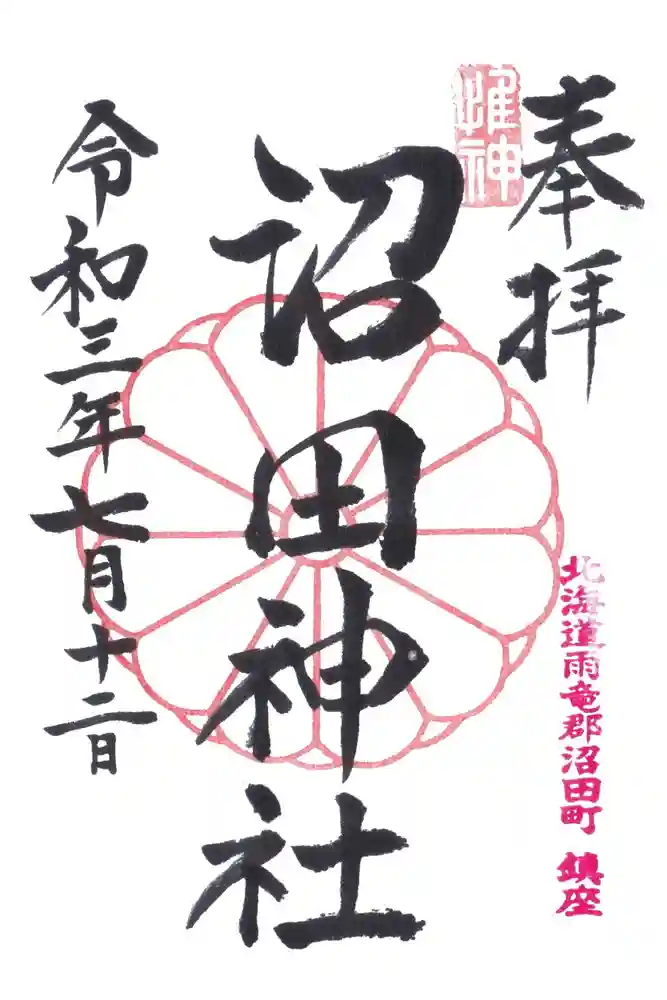 奉拝
惟神
北海道雨竜郡沼田町 鎮座
沼田神社
令和三年七月十二日